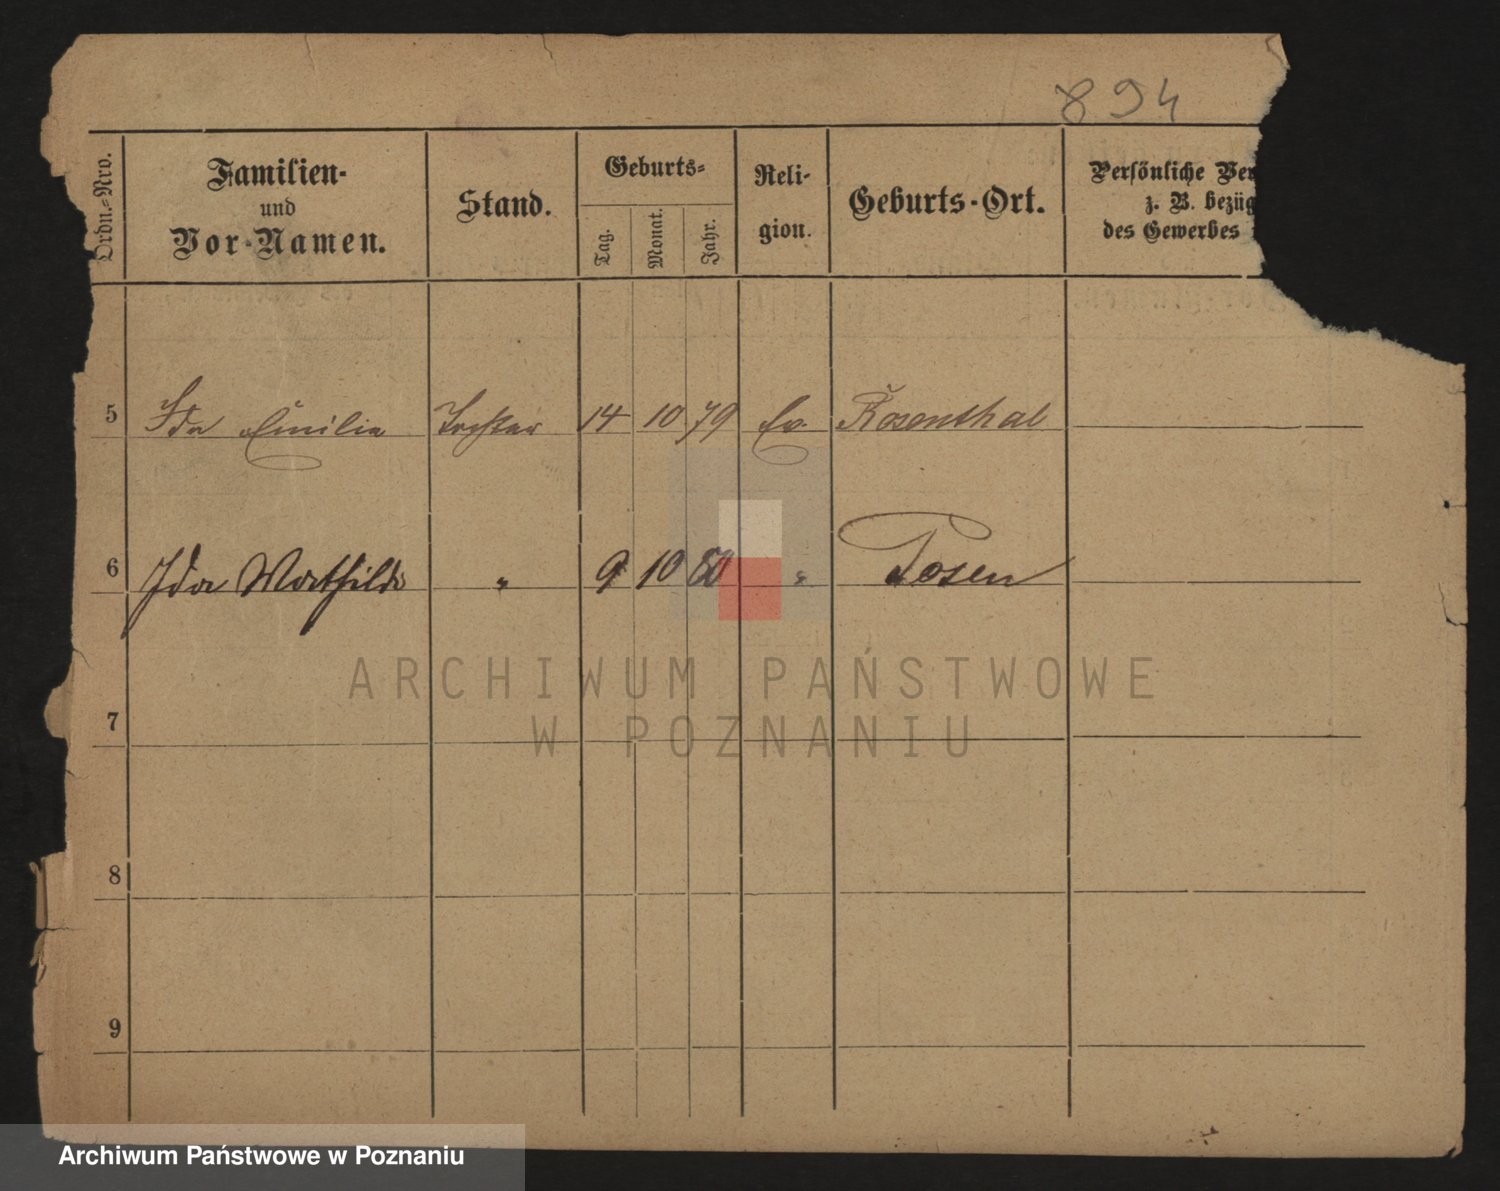 894
Ordn.-Nro.
Familien-
und
Vor-Namen.
Stand.
Geburts-
Tag.
Monat.
Jahr.
Reli-
gion.
Geburts-Ort.
Persönliche Ver
z. B. bezüg
des Gewerbes
5 Ida Emilie Tochter 14 10 79 Ev. Rosenthal
6 Ida Mathilde " 9 10 80 " Posen
7
8
9
ARCHIWUM PAŃSTWOWE
W POZNANIU
Archiwum Państwowe w Poznaniu